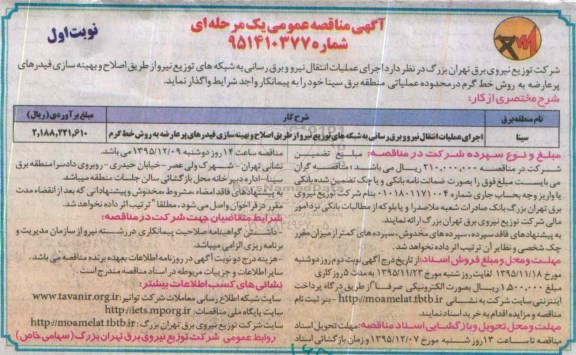 آگهی مناقصه عمومی یک مرحله ای
شماره ۹۵۱۴۱۰۳۷۷
نوبت اول
شرکت توزیع نیروی برق تهران بزرگ در نظر دارد اجرای عملیات انتقال نیرو و برق رسانی به شبکه های توزیع نیرو از طریق اصلاح و بهینه سازی فیدرهای
پرعارضه به روش خط گرم در محدوده عملیاتی منطقه برق سینا خود را به پیمانکار واجد شرایط واگذار نماید.
شرح مختصری از کار:
نام منطقه برق
شرح کار
مبلغ برآوردی (ریال)
سینا
اجرای عملیات انتقال نیرو و برق رسانی به شبکه های توزیع نیرو از طریق اصلاح و بهینه سازی فیدرهای پرعارضه به روش خط گرم
۲,۱۸۸,۲۲۱,۶۱۰
مبلغ و نوع سپرده شرکت در مناقصه: مبلغ تضمین
شرکت در مناقصه ۲۱۰,۰۰۰,۰۰۰ ریال می باشد؛ مناقصه گران
می بایست مبلغ فوق را بصورت ضمانت نامه بانکی و یا چک تضمین شده بانکی
یا واریز وجه بحساب جاری شماره ۰۱۰۱۸۰۱۱۷۱۰۰۴ بنام شرکت توزیع نیروی
برق تهران بزرگ بانک صادرات شعبه ملاصدرا و یا بلوکه از مطالبات بانکی نزد امور
مالی شرکت توزیع نیروی برق تهران بزرگ ارائه نمایند.
به پیشنهادهای فاقد سپرده، سپرده های مخدوش، سپرده های کمتر از میزان مقرر
چک شخصی و نظایر آن ترتیب اثر داده نخواهد شد.
مهلت و محل و مبلغ فروش اسناد: از تاریخ درج آگهی نوبت دوم روز دوشنبه
مورخ ۱۳۹۵/۱۱/۱۸ لغایت روز شنبه مورخ ۱۳۹۵/۱۱/۲۳ به مدت ۵ روز کاری
۱,۵۰۰,۰۰۰ ریال بصورت الکترونیکی صرفاً از طریق درگاه پرداخت
اینترنتی سایت شرکت به نشانی http://moamelat.tbtb.ir - بنز ثبت نام
مناقصه و مزایده اقدام به خرید اسناد نمایند.
مهلت و محل تحویل و بازگشایی اسناد مناقصه: مهلت تحویل اسناد
مناقصه تا ساعت ۱۲ روز شنبه مورخ ۱۳۹۵/۱۲/۰۷ و زمان بازگشائی اسناد
مناقصه ساعت ۱۴ روز دوشنبه ۱۳۹۵/۱۲/۰۹ می باشد.
نشانی تهران - شهرک ولی عصر - خیابان حیدری - روبروی دادسرا منطقه برق
سینا - اداره دبیرخانه محل بازگشائی سالن جلسات منطقه میباشد.
به پیشنهادهای فاقد امضاء، مشروط، مخدوش و پیشنهاداتی که بعد از انقضاء مدت
مقرر در فراخوان واصل می شود، مطلقاً ترتیب اثر داده نخواهد شد.
شرایط متقاضیان جهت شرکت در مناقصه:
- داشتن گواهینامه صلاحیت پیمانکاری در رشته نیرو از سازمان مدیریت و
برنامه ریزی الزامی میباشد.
- هزینه درج دو نوبت آگهی در روزنامه اطلاعات بعهده برنده مناقصه می باشد.
سایر اطلاعات و جزییات مربوطه در اسناد مناقصه مندرج است.
نشانی های کسب اطلاعات بیشتر:
سایت شبکه اطلاع رسانی معاملات شرکت توانیر: www.tavanir.org.ir
سایت پایگاه ملی مناقصات: http://iets.mporg.ir
سایت شرکت توزیع نیروی برق تهران بزرگ: http://moamelat.tbtb.ir
روابط عمومی شرکت توزیع نیروی برق تهران بزرگ (سهامی خاص)